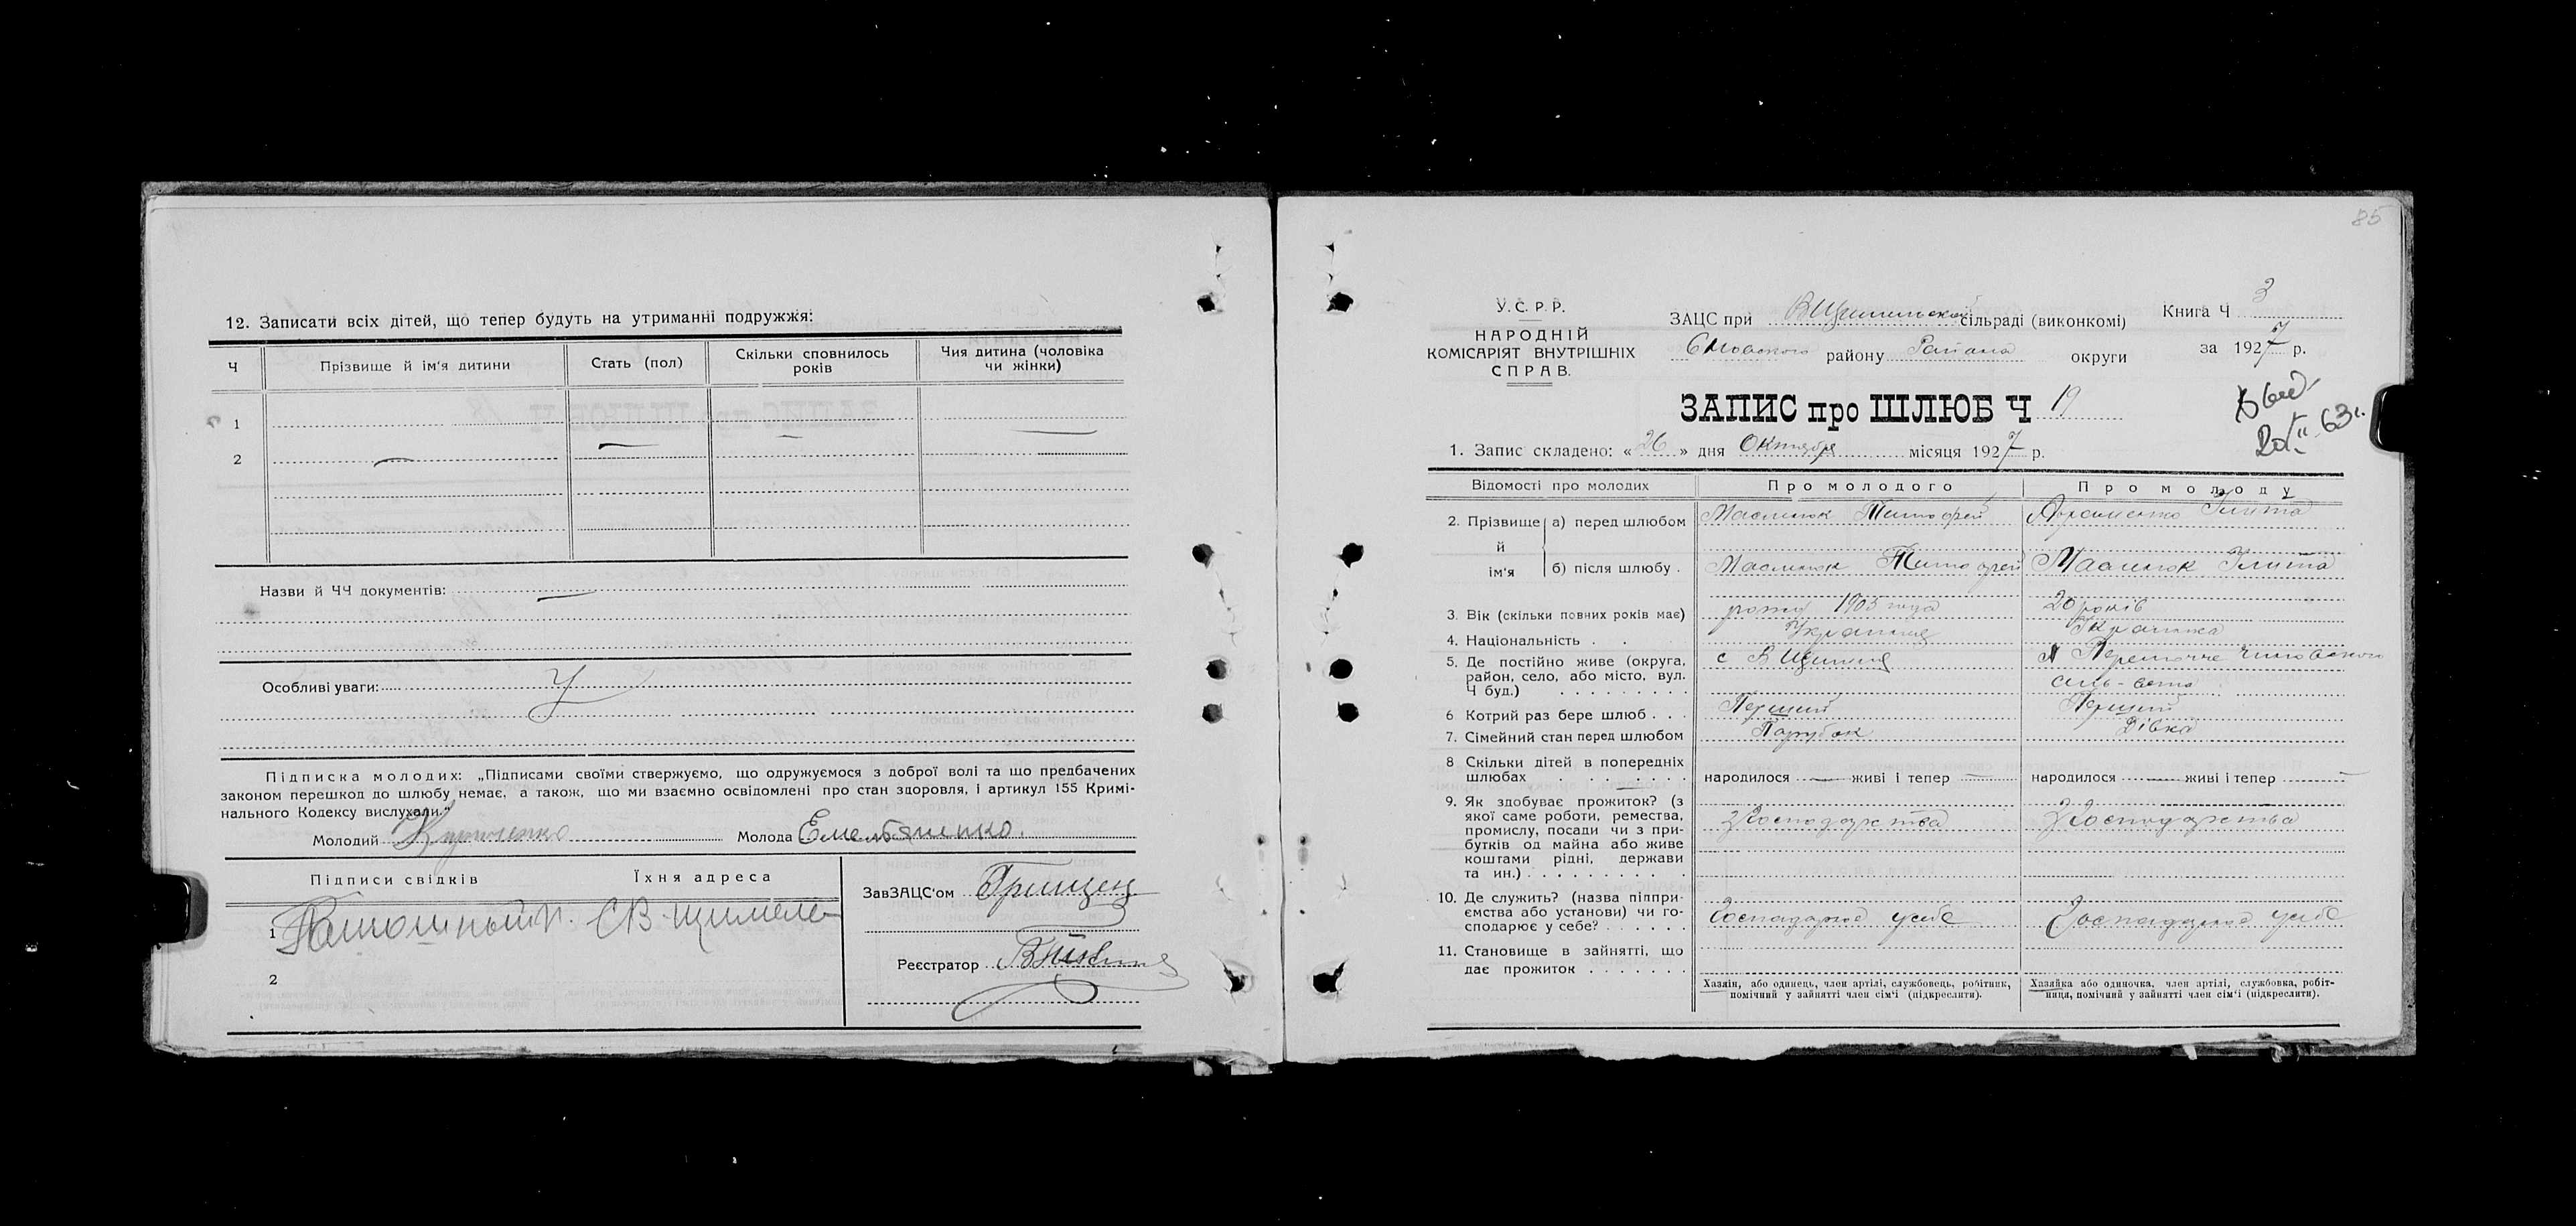 12. Записати всіх дітей, що тепер будуть на утриманні подружжя:
Ч Прізвище й ім'я дитини Стать (пол) Скільки сповнилось років Чия дитина (чоловіка чи жінки)
1
2
Назви й ЧЧ документів:
Особливі уваги:
Підписка молодих: „Підписами своїми стверджуємо, що одружуємося з доброї волі та що предбачених
законом перешкод до шлюбу немає, а також, що ми взаємно освідомлені про стан здоровля, і артикул 155 Кримі-
нального Кодексу вислухали."
Молодий Молода Емельяненко.
Підписи свідків Їхня адреса
ЗавЗАЦС'ом
1
Реєстратор
2
85
У.С.Р.Р.
НАРОДНІЙ
КОМІСАРІЯТ ВНУТРІШНІХ
СПРАВ.
ЗАЦС при сільраді (виконкомі)
району Района округи
Книга Ч 3
за 1927 р.
ЗАПИС про ШЛЮБ Ч 19
63 г.
1. Запис складено: «26» дня Октября місяця 1927 р.
Відомості про молодих Про молодого Про молоду
2. Прізвище й ім'я а) перед шлюбом Маслюк Тимофей
б) після шлюбу . Маслюк Тимофей Маслюк
3. Вік (скільки повних років має) 1903 года 20 років
4. Національність . . Українка
5. Де постійно живе (округа, район, село, або місто, вул. Ч буд.) с
6 Котрий раз бере шлюб . . . Перший Перший
7. Сімейний стан перед шлюбом Парубок Дівка
8 Скільки дітей в попередніх шлюбах народилося — живі і тепер — народилося — живі і тепер —
9. Як здобуває прожиток? (з якої саме роботи, ремества, промислу, посади чи з прибутків од майна або живе коштами рідні, держави та ин.) З господарства З господарства
10. Де служить? (назва підприємства або установи) чи господарює у себе? Господарює у себе Господарює у себе
11. Становище в зайнятті, що дає прожиток
Хазяїн, або одинець, член артілі, службовець, робітник, помічний у зайнятті член сім'ї (підкреслити).
Хазяйка або одиночка, член артілі, службовка, робітниця, помічний у зайнятті член сім'ї (підкреслити).